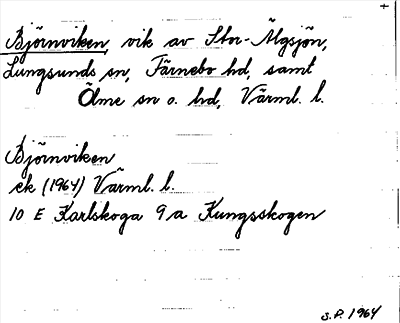 Björnviken, vik av Stor-Älgsjön,
Lungsunds sn, Färnebo hd, samt
Ölme sn o. hd, Värml. l.
Björnviken
ek (1964) Värml. l.
10 E Karlskoga 9a Kungsskogen
S.P. 1964